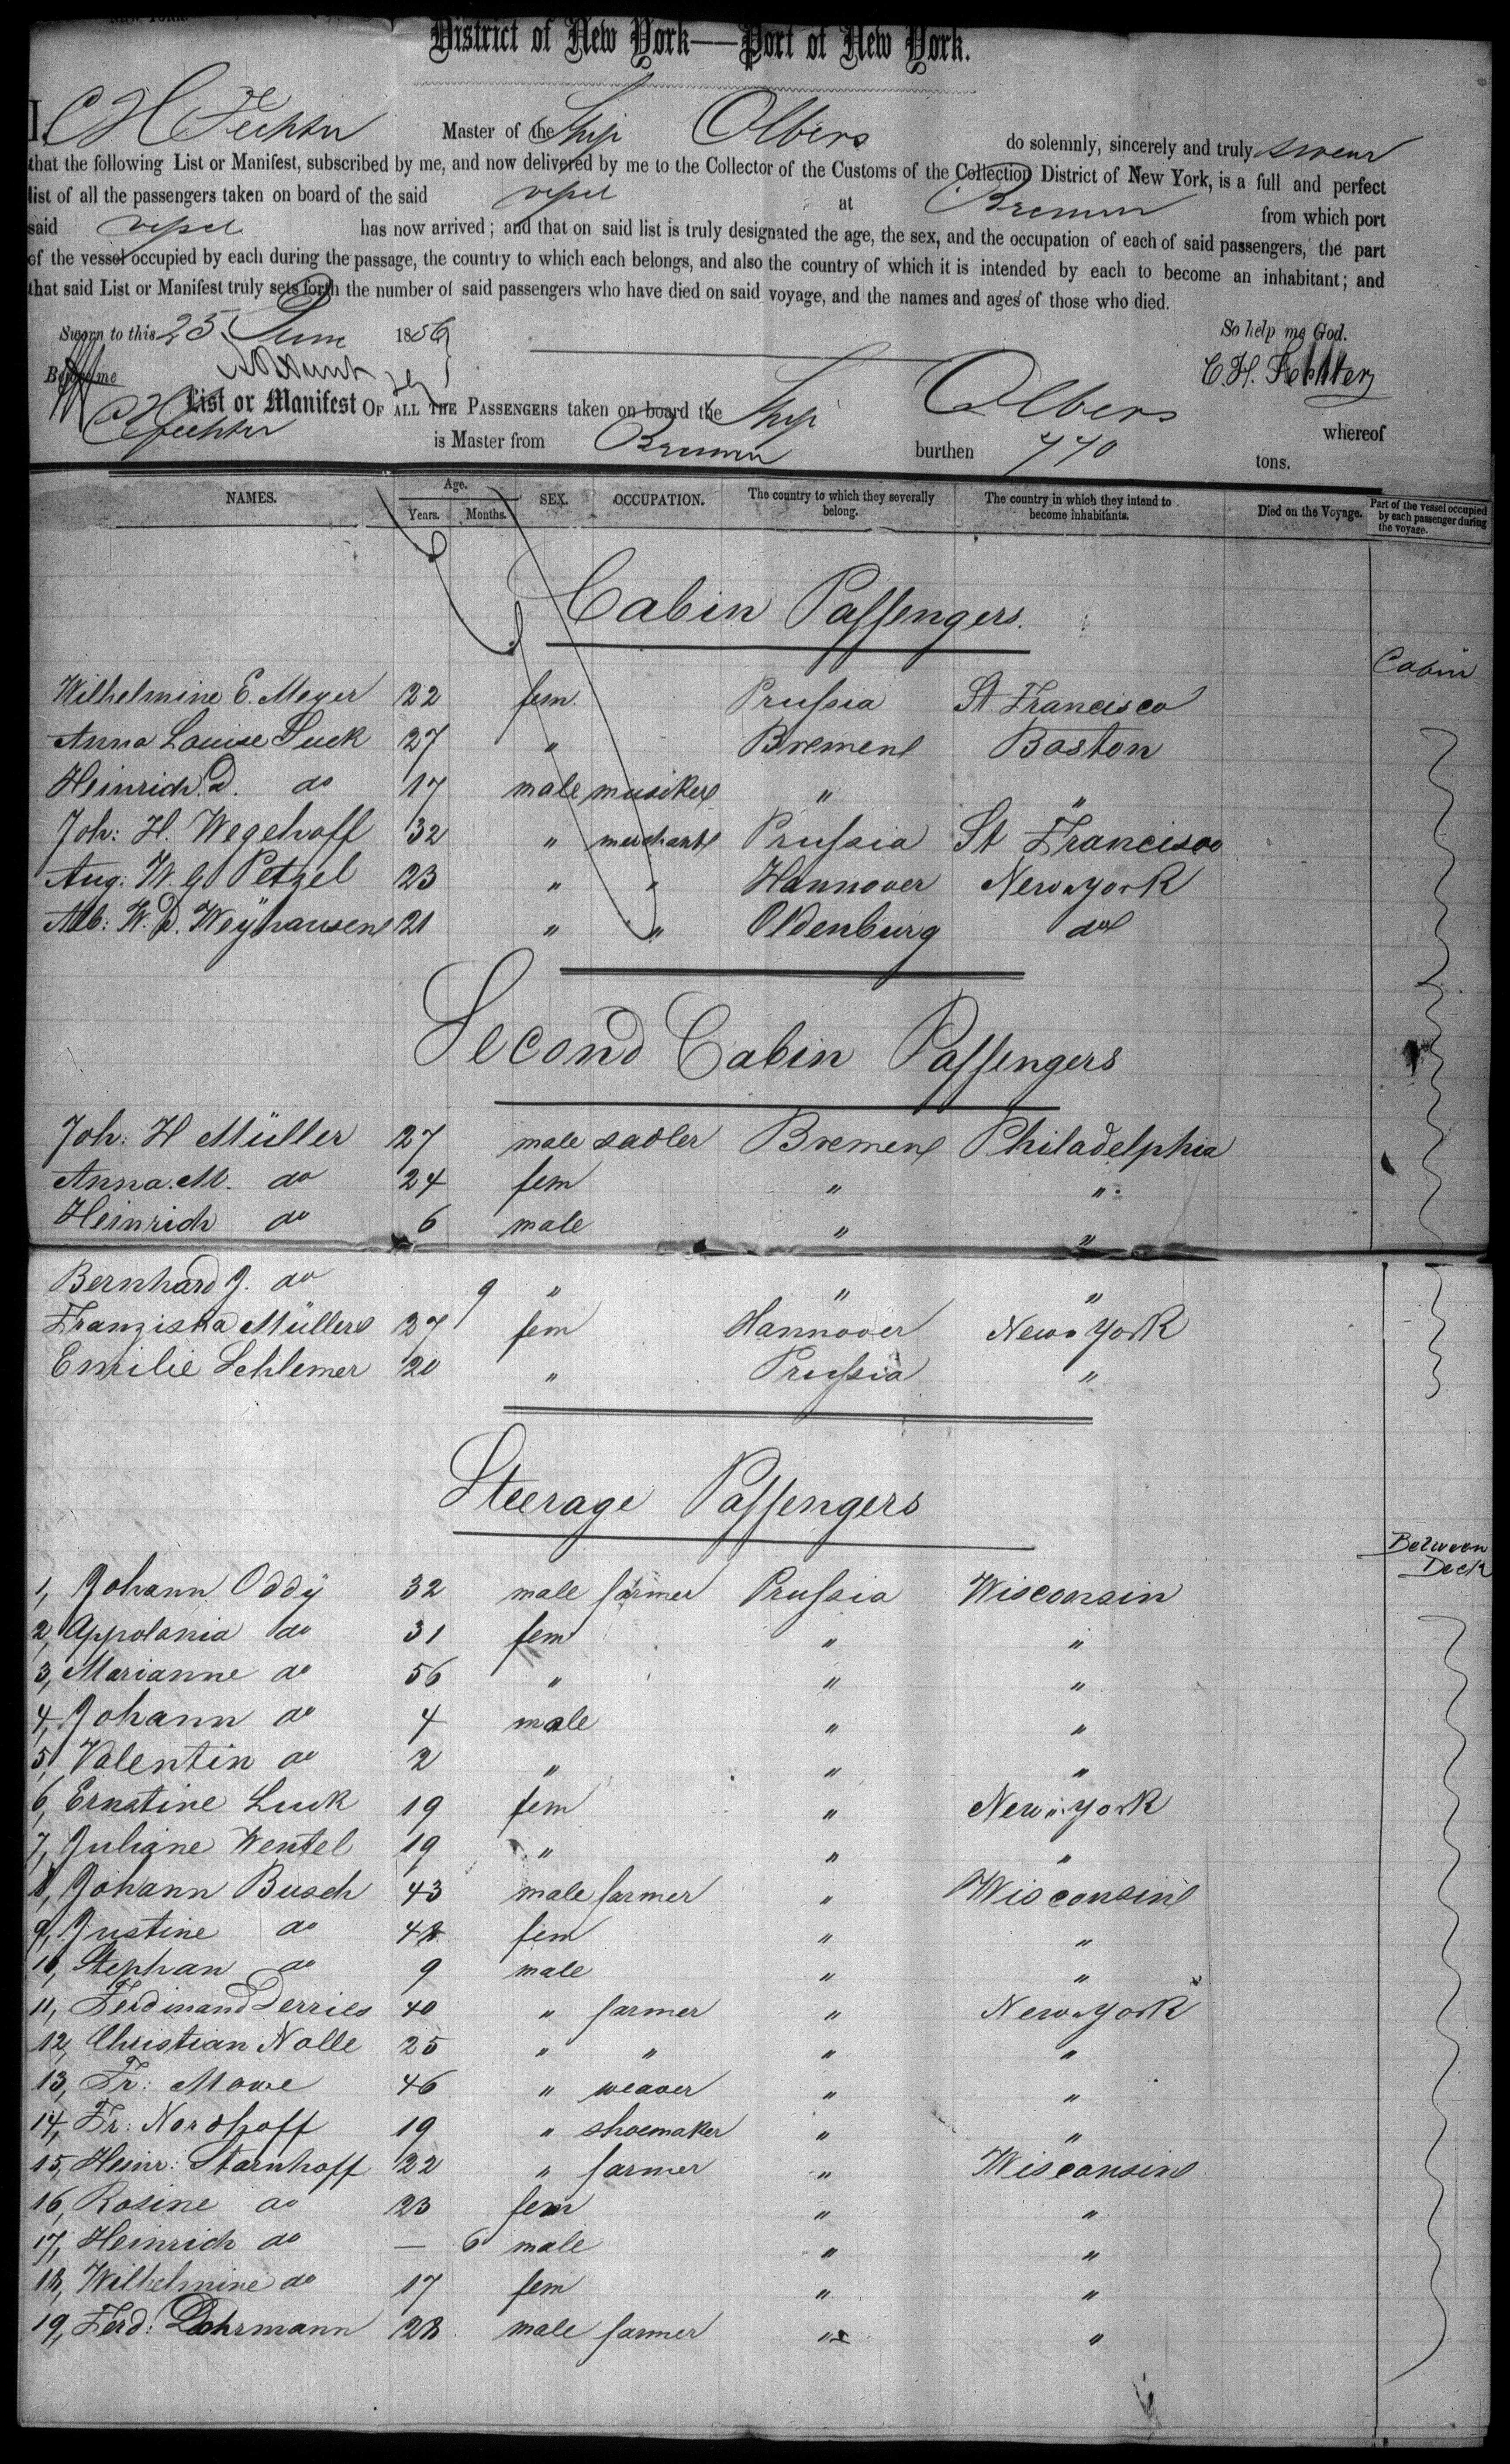 District of New York—Port of New York.
I, C H Fechter Master of the Ship Olbers do solemnly, sincerely and truly swear
that the following List or Manifest, subscribed by me, and now delivered by me to the Collector of the Customs of the Collection District of New York, is a full and perfect
list of all the passengers taken on board of the said vessel at Bremen from which port
said vessel has now arrived; and that on said list is truly designated the age, the sex, and the occupation of each of said passengers, the part
of the vessel occupied by each during the passage, the country to which each belongs, and also the country of which it is intended by each to become an inhabitant; and
that said List or Manifest truly sets forth the number of said passengers who have died on said voyage, and the names and ages of those who died.
Sworn to this 25 June 1856 So help me God.
Before me C. H. Fechter
List or Manifest OF ALL THE PASSENGERS taken on board the Ship Olbers whereof
C H Fechter is Master from Bremen burthen 770 tons.
NAMES. Age. Years. Months. SEX. OCCUPATION. The country to which they severally belong. The country in which they intend to become inhabitants. Died on the Voyage. Part of the vessel occupied by each passenger during the voyage.
Cabin Passengers.
Cabin
Wilhelmine E. Meyer 22 fem. Prussia St Francisco
Anna Louise Suck 27 " Bremen Boston
Heinrich D. do 17 male musiker " "
Joh: H. Wegehoff 32 " merchant Prussia St Francisco
Aug: W. G. Petzel 23 " " Hannover New-york
Alb: W. D. Weÿhausen 21 " " Oldenburg do
Second Cabin Passengers
Joh: H Müller 27 male sadler Bremen Philadelphia
Anna. M. do 24 fem " "
Heinrich do 6 male " "
Bernhard J. do 9 " " "
Franziska Müller 27 fem Hannover New-york
Emilie Schlemer 20 " Prussia "
Steerage Passengers
Between Deck
1, Johann Oddÿ 32 male farmer Prussia Wisconsin
2, Appolonia do 31 fem " "
3, Marianne do 56 " " "
4, Johann do 4 male " "
5, Valentin do 2 " " "
6, Ernstine Luck 19 fem " New-york
7, Juliane Wentel 19 " " "
8, Johann Busch 43 male farmer " Wisconsin
9, Justine do 48 fem " "
10, Stephan do 9 male " "
11, Ferdinand Derries 40 " farmer " New-york
12, Christian Nolle 25 " " " "
13, Fr: Mowe 46 " weaver " "
14, Fr: Nordhoff 19 " shoemaker " "
15, Heinr: Starnhoff 22 " farmer " Wisconsin
16, Rosine do 23 fem " "
17, Heinrich do — 6 male " "
18, Wilhelmine do 17 fem " "
19, Ferd: Dohrmann 28 male farmer " "